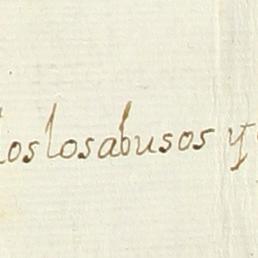 los los abusos y